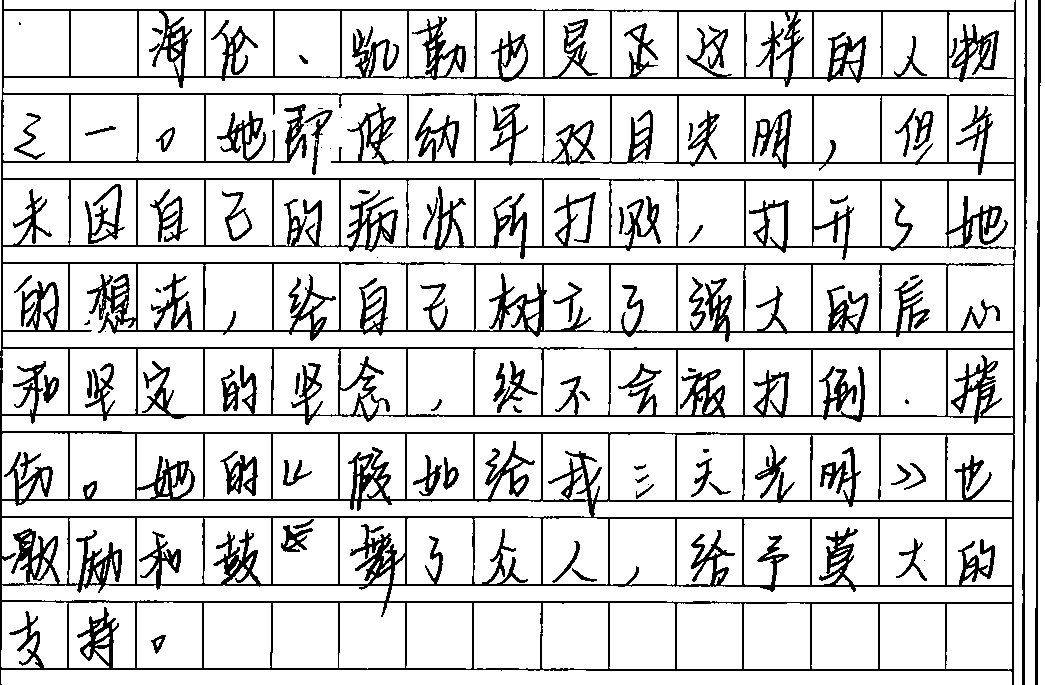 海伦、凯勒也是这样的人物
之一。她即使幼年双目失明，但并
未因自己的病状所打败，打开了她
的想法，给自己树立了强大的后心
和坚定的坚念，终不会被打倒．摧
伤。她的《假如给我三天光明》也
激励和鼓舞了众人，给予莫大的
支持。